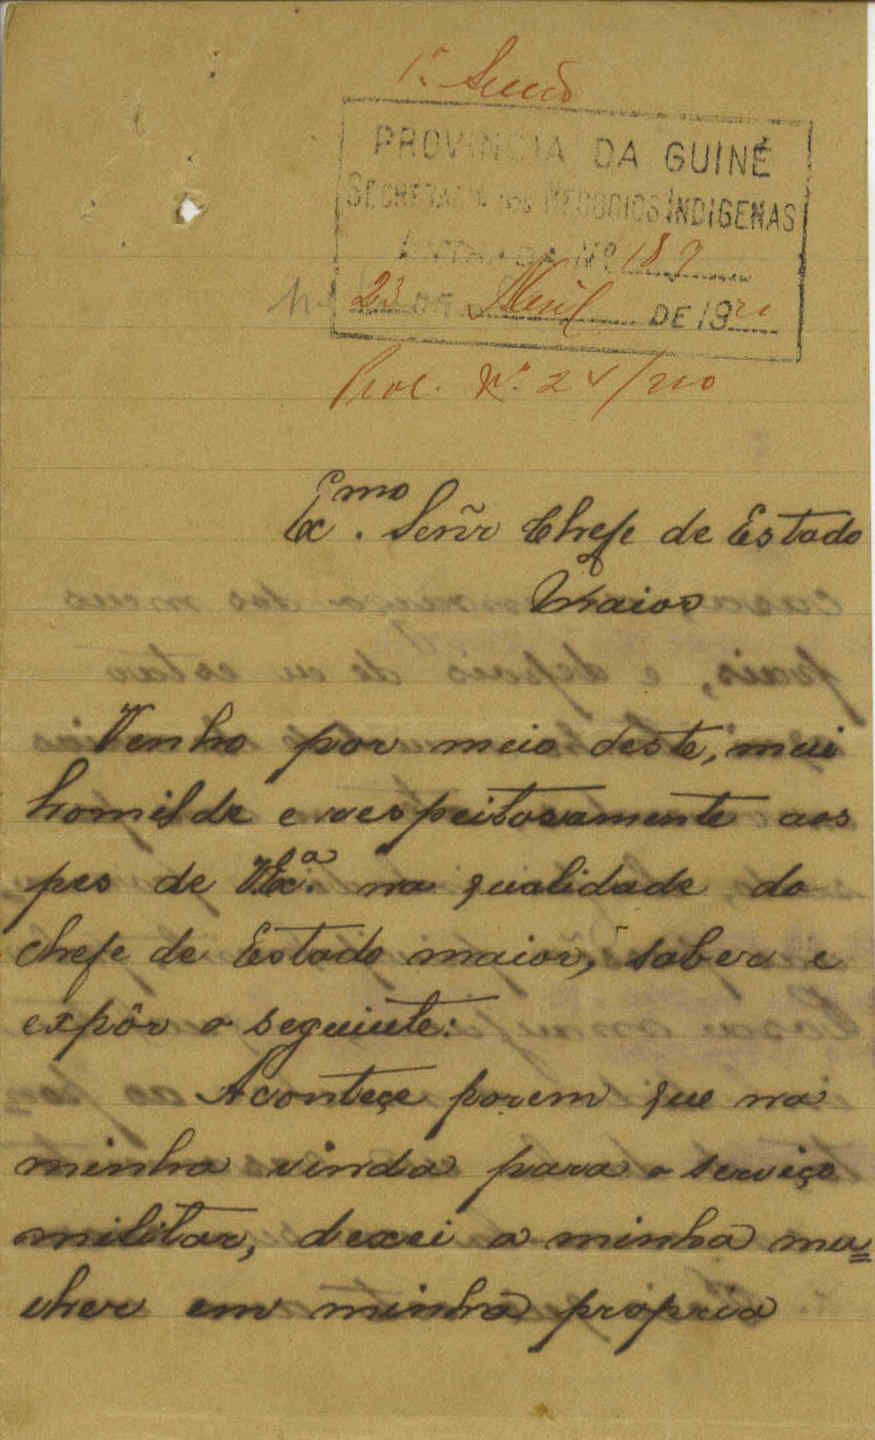 1ª Secção
PROVINCIA DA GUINÉ
SECRETARIA DOS NEGOCIOS INDIGENAS
ENTRADA Nº 187
23 DE Abril DE 1921
Proc. Nº
Exmo. Señr Chefe de Estado
Maior
Venho por meio deste, mui
homilde e respeitosamente aos
pes de VExª. na qualidade do
chefe de Estado maior, saber e
expôr o seguinte:
Aconteçe porem que na
minha vinda para o serviço
militar, dexei a minha mu=
cher em minha própria